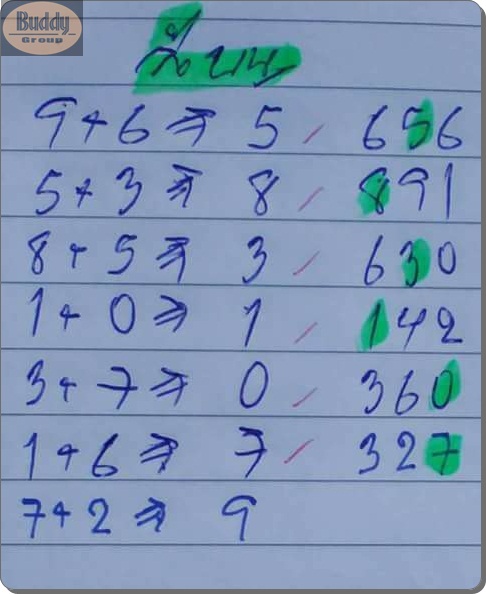 Buddy
Group
วิ่งบน
9+6 ⇒ 5 / 656
5+3 ⇒ 8 / 891
8+5 ⇒ 3 / 630
1+0 ⇒ 1 / 142
3+7 ⇒ 0 / 360
1+6 ⇒ 7 / 327
7+2 ⇒ 9